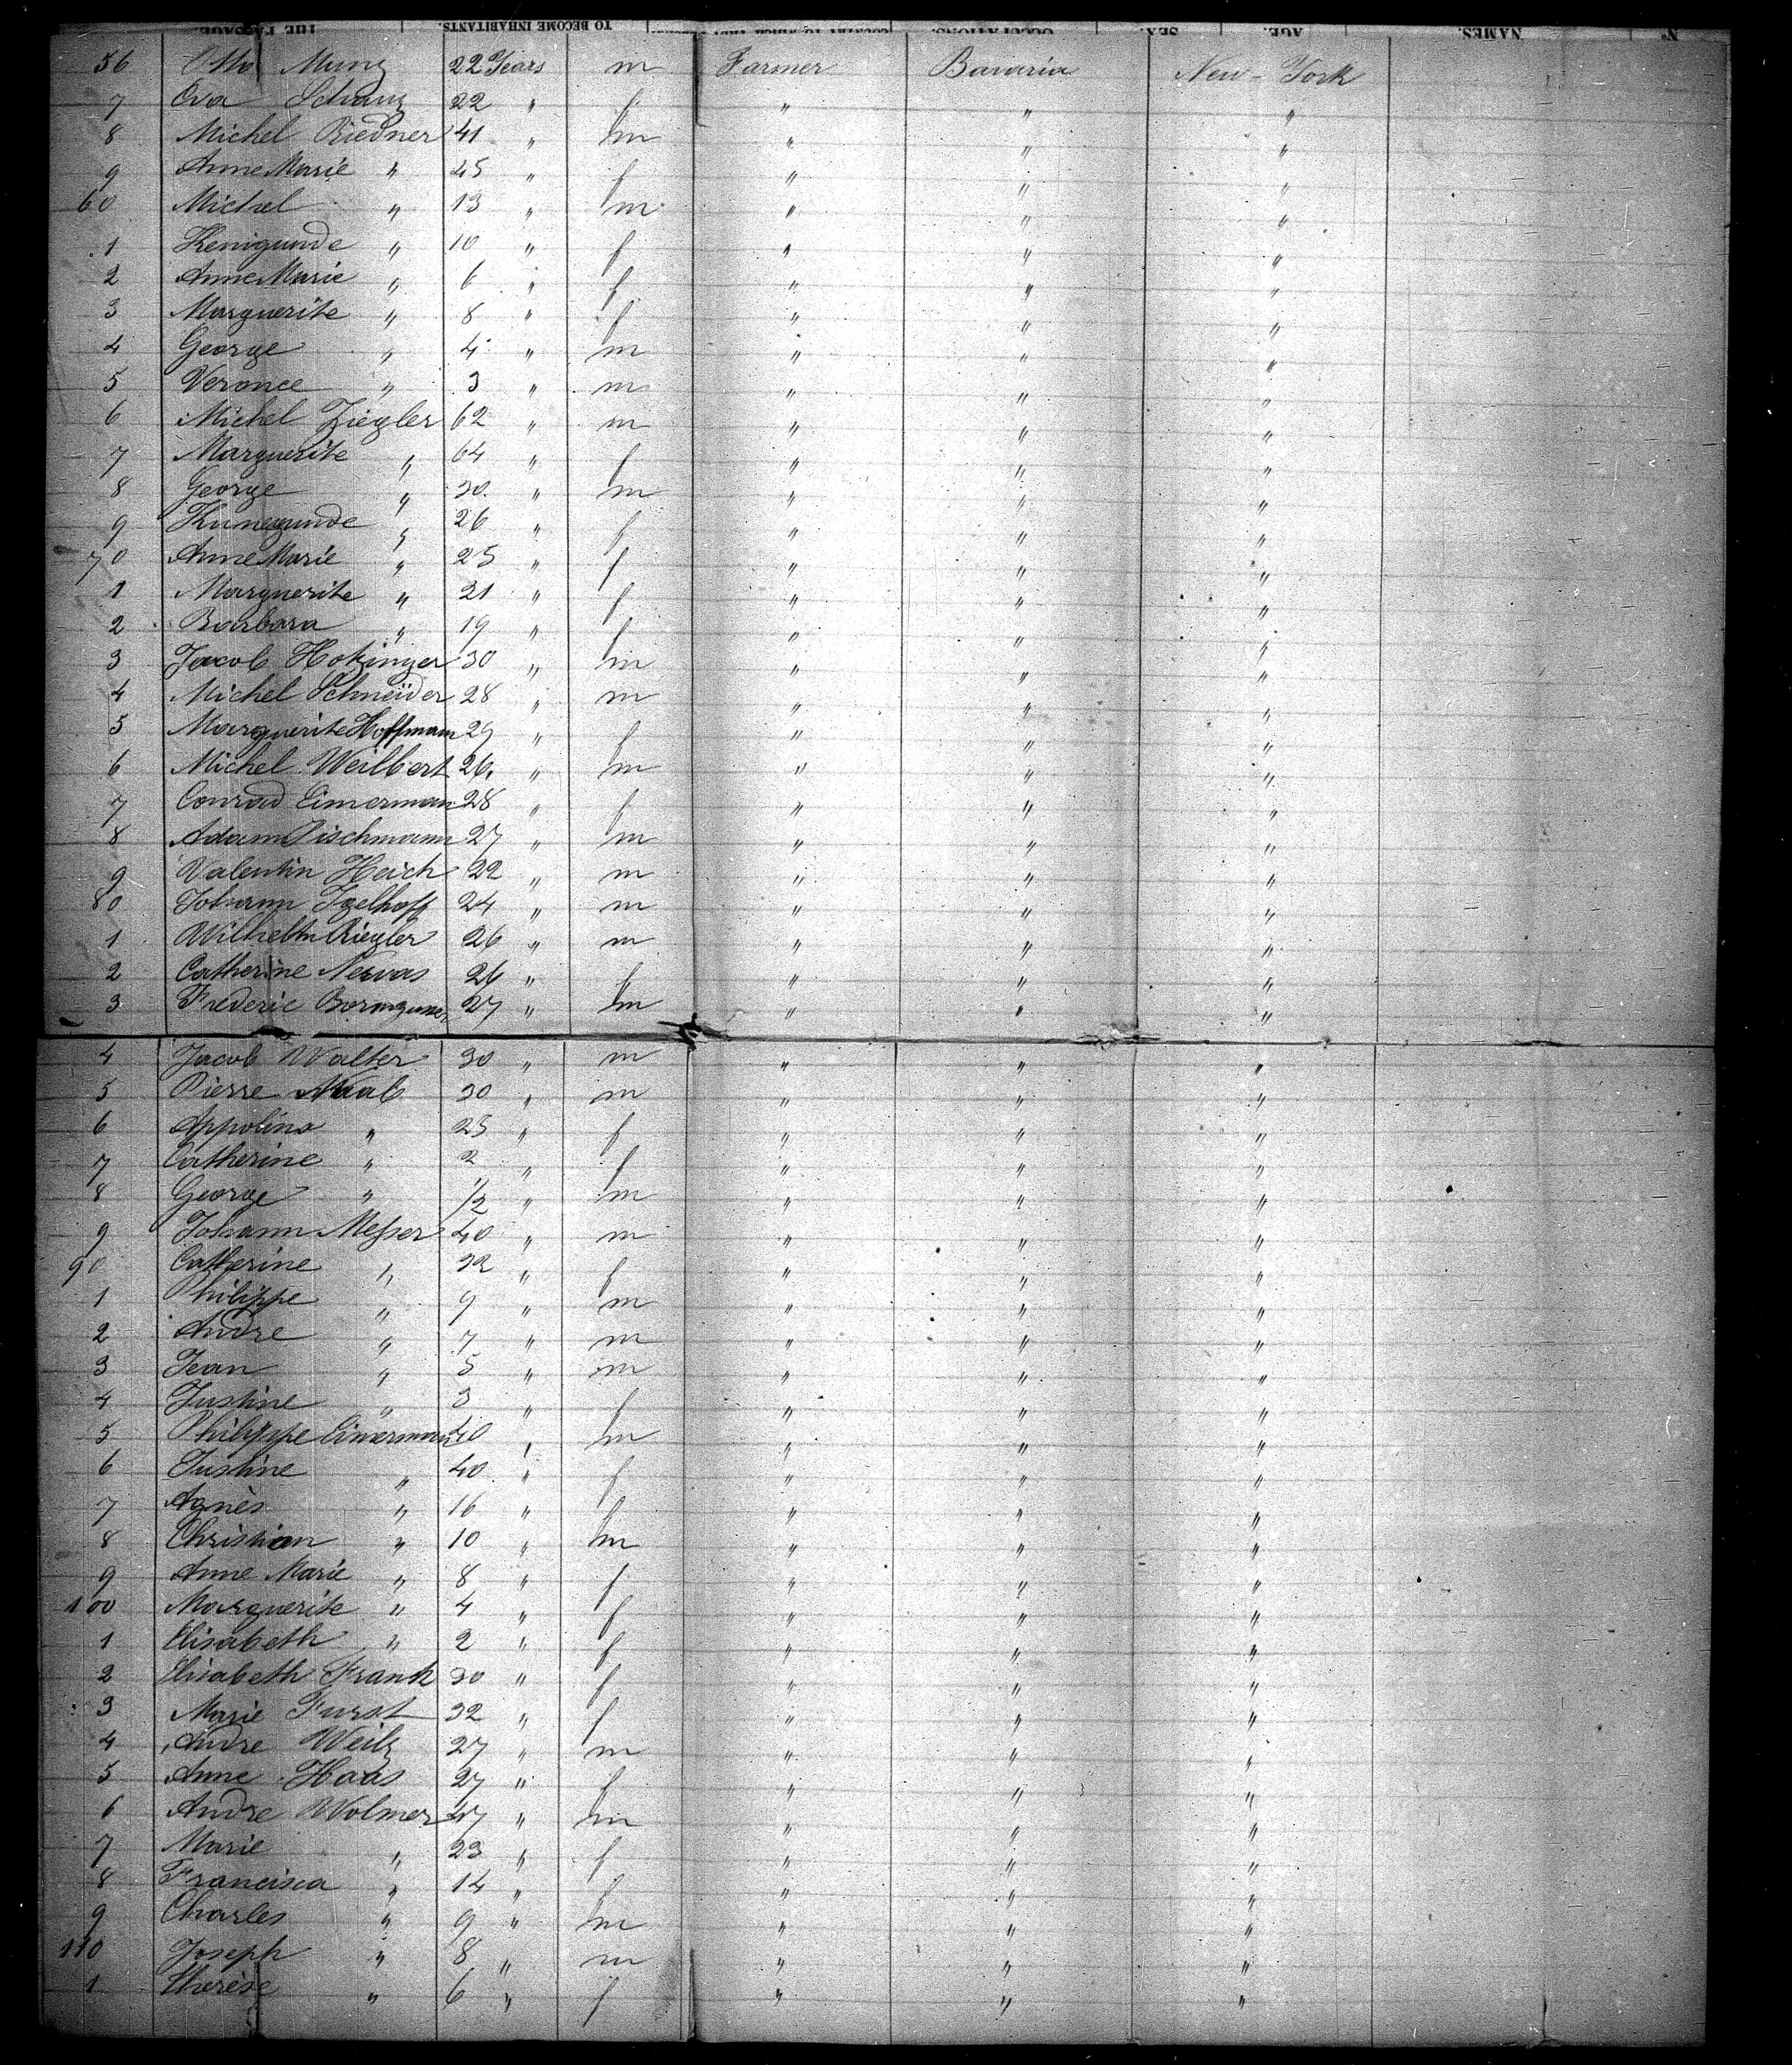 THE PASSAGE. TO BECOME INHABITANTS. OCCUPATIONS. SEX. AGE. NAMES. No
56 Otto Munz 22 Years m Farmer Bavaria New-York
7 Eva Schanz 22 " f " " "
8 Michel Riedner 41 " m " " "
9 Anne Marie " 45 " f " " "
60 Michel " 13 " m " " "
1 Kenigunde " 10 " f " " "
2 Anne Marie " 6 " f " " "
3 Marguerite " 8 " f " " "
4 George " 4 " m " " "
5 Veronce " 3 " m " " "
6 Michel Ziegler 62 " m " " "
7 Marguerite " 64 " f " " "
8 George " 30 " m " " "
9 Kunegunde " 26 " f " " "
70 Anne Marie " 25 " f " " "
1 Marguerite " 21 " f " " "
2 Barbara " 19 " f " " "
3 Jacob Hotzinger 30 " m " " "
4 Michel Schneider 28 " m " " "
5 Marguerite Hoffmann 29 " f " " "
6 Michel Weilbert 26 " m " " "
7 Conrad Eimerman 28 " f " " "
8 Adam Fischmann 27 " m " " "
9 Valentin Heich 22 " m " " "
80 Johann Igelhoff 24 " m " " "
1 Wilhelm Riegler 26 " m " " "
2 Catherine Nervas 26 " f " " "
3 Frederic 27 " m " " "
4 Jacob Walter 30 " m " " "
5 Pierre Naab 30 " m " " "
6 Appolina " 25 " f " " "
7 Catherine " 2 " f " " "
8 George " 1/2 " m " " "
9 Johann Messer 40 " m " " "
90 Catherine " 32 " f " " "
1 Philippe " 9 " m " " "
2 Andre " 7 " m " " "
3 Jean " 5 " m " " "
4 Justine " 3 " f " " "
5 Philippe Eimerman 40 " m " " "
6 Justine " 40 " f " " "
7 Agnès " 16 " f " " "
8 Christian " 10 " m " " "
9 Anne Marie " 8 " f " " "
100 Marguerite " 4 " f " " "
1 Elisabeth " 2 " f " " "
2 Elisabeth Frank 30 " f " " "
3 Marie Furst 32 " f " " "
4 Andre Weilz 27 " m " " "
5 Anne Haas 27 " f " " "
6 Andre Wolmer 47 " m " " "
7 Marie " 23 " f " " "
8 Francisca " 14 " f " " "
9 Charles " 9 " m " " "
110 Joseph " 8 " m " " "
1 Therèse " 6 " f " " "